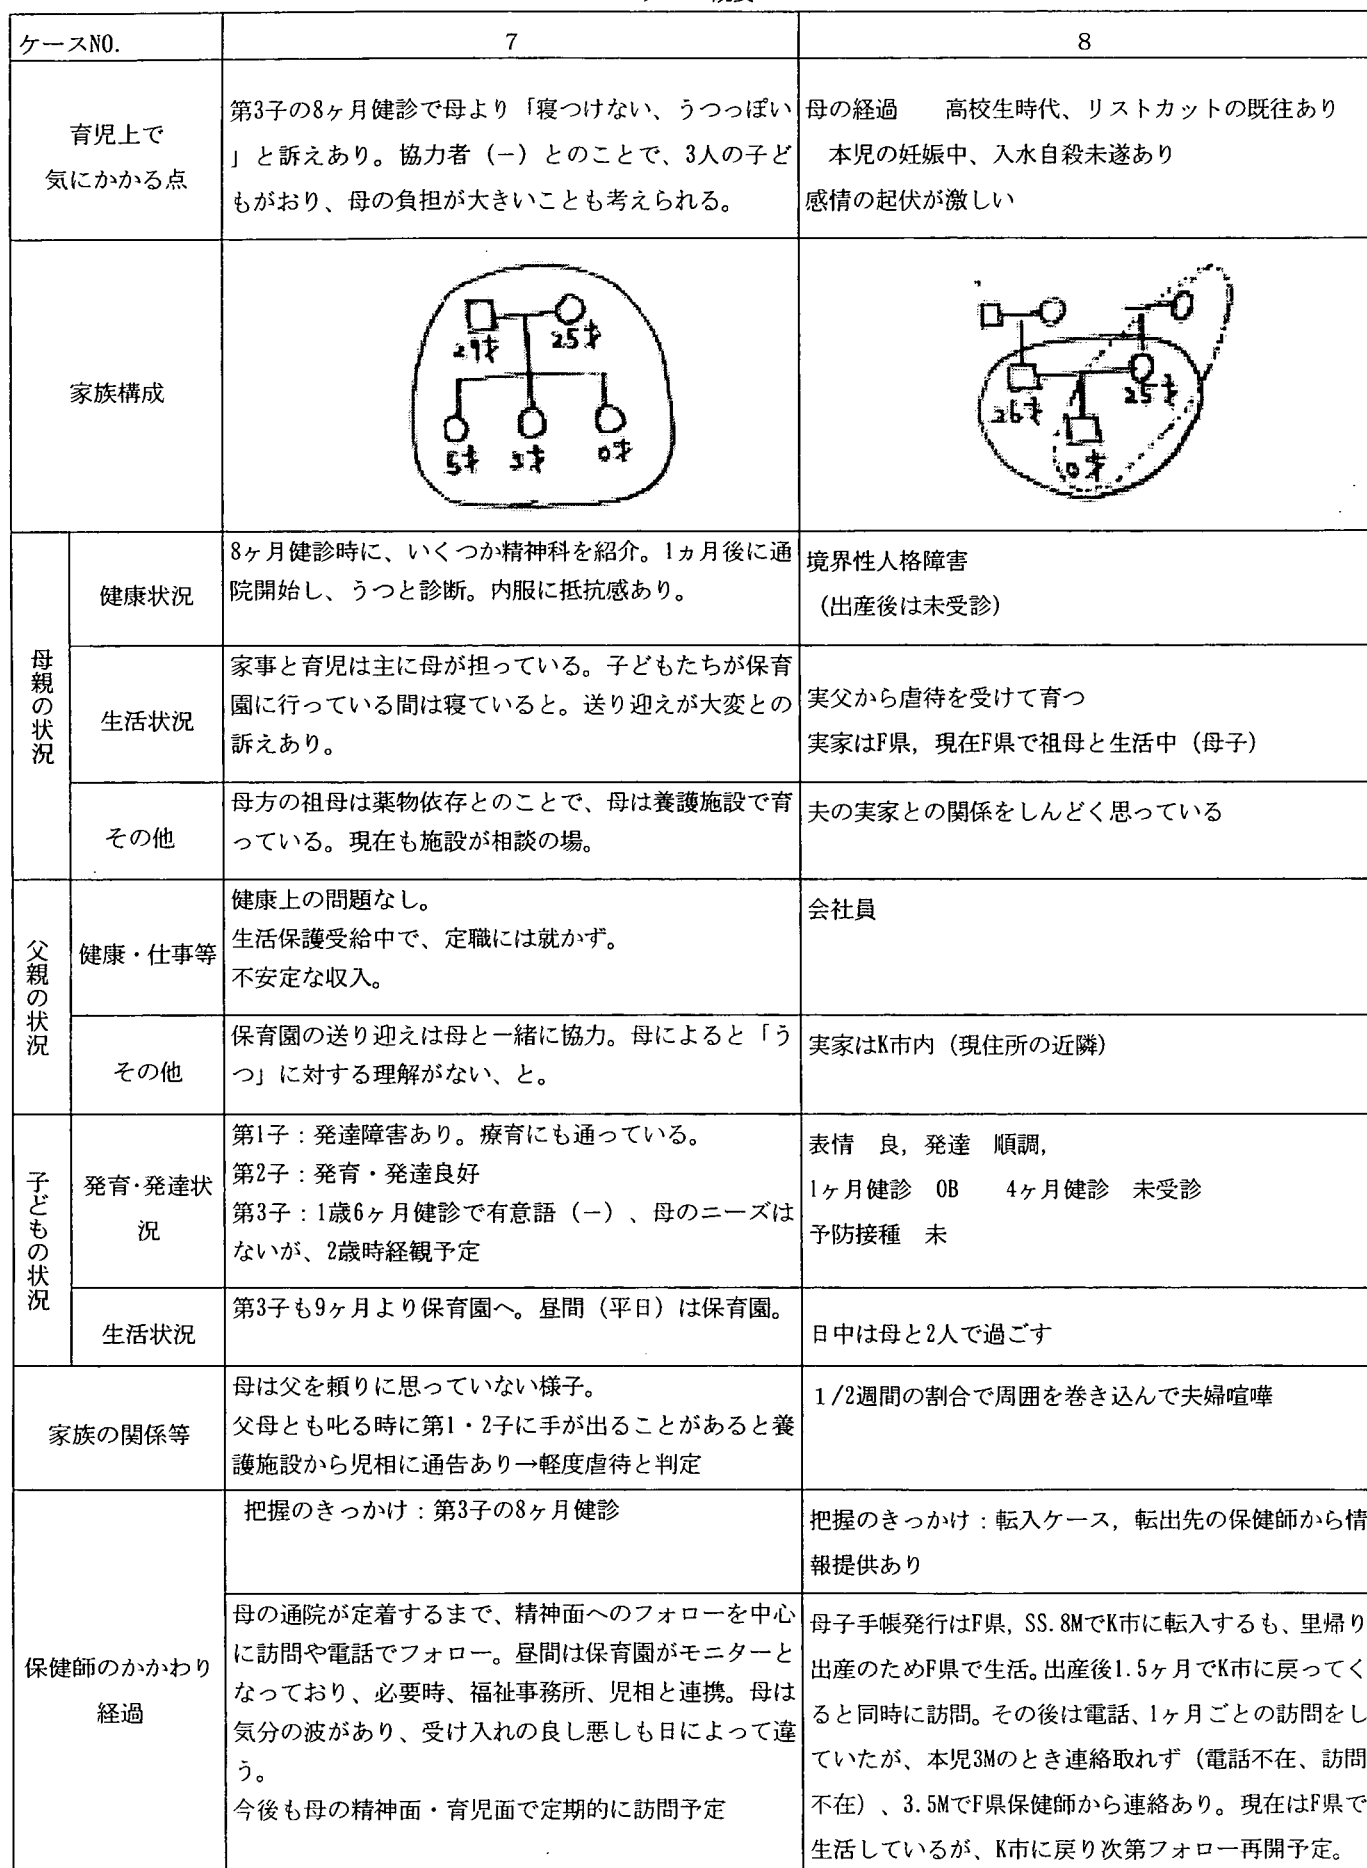 ケースNO.
7
8
育児上で
気にかかる点
第3子の8ヶ月健診で母より「寝つけない、うつっぽい
」と訴えあり。協力者（－）とのことで、3人の子ど
もがおり、母の負担が大きいことも考えられる。
母の経過　　高校生時代、リストカットの既往あり
本児の妊娠中、入水自殺未遂あり
感情の起伏が激しい
家族構成
29才
25才
5才
3才
0才
26才
25才
0才
母親の状況
健康状況
8ヶ月健診時に、いくつか精神科を紹介。1ヵ月後に通
院開始し、うつと診断。内服に抵抗感あり。
境界性人格障害
（出産後は未受診）
生活状況
家事と育児は主に母が担っている。子どもたちが保育
園に行っている間は寝ていると。送り迎えが大変との
訴えあり。
実父から虐待を受けて育つ
実家はF県，現在F県で祖母と生活中（母子）
その他
母方の祖母は薬物依存とのことで、母は養護施設で育
っている。現在も施設が相談の場。
夫の実家との関係をしんどく思っている
父親の状況
健康・仕事等
健康上の問題なし。
生活保護受給中で、定職には就かず。
不安定な収入。
会社員
その他
保育園の送り迎えは母と一緒に協力。母によると「う
つ」に対する理解がない、と。
実家はK市内（現住所の近隣）
子どもの状況
発育・発達状
況
第1子：発達障害あり。療育にも通っている。
第2子：発育・発達良好
第3子：1歳6ヶ月健診で有意語（－）、母のニーズは
ないが、2歳時経観予定
表情　良，発達　順調，
1ヶ月健診　OB　　4ヶ月健診　未受診
予防接種　未
生活状況
第3子も9ヶ月より保育園へ。昼間（平日）は保育園。
日中は母と2人で過ごす
家族の関係等
母は父を頼りに思っていない様子。
父母とも叱る時に第1・2子に手が出ることがあると養
護施設から児相に通告あり→軽度虐待と判定
1/2週間の割合で周囲を巻き込んで夫婦喧嘩
保健師のかかわり
経過
把握のきっかけ：第3子の8ヶ月健診
把握のきっかけ：転入ケース，転出先の保健師から情
報提供あり
母の通院が定着するまで、精神面へのフォローを中心
に訪問や電話でフォロー。昼間は保育園がモニターと
なっており、必要時、福祉事務所、児相と連携。母は
気分の波があり、受け入れの良し悪しも日によって違
う。
今後も母の精神面・育児面で定期的に訪問予定
母子手帳発行はF県，SS.8MでK市に転入するも、里帰り
出産のためF県で生活。出産後1.5ヶ月でK市に戻ってく
ると同時に訪問。その後は電話、1ヶ月ごとの訪問をし
ていたが、本児3Mのとき連絡取れず（電話不在、訪問
不在）、3.5MでF県保健師から連絡あり。現在はF県で
生活しているが、K市に戻り次第フォロー再開予定。